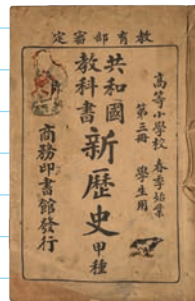 教育部審定
高等小學校 春季始業
第三冊 學生用
共和國
教科書
新歷史
甲種
商務印書館發行